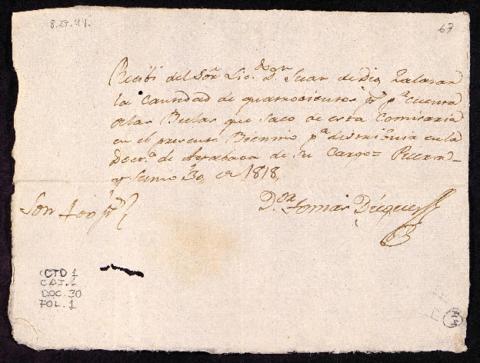 8.29.44.
67
Recibi del Sor. Lic. Dn. Juan de Dios Salazar
la Cantidad de quatrocientos ps. pa. cuenta
de las Bulas que Saco de esta Comisaria
en el presente Biennio pa. distribuir en la
de de Su Cargo=
y Junio 30 de 1818
Son 400 ps.
Dor. Tomas
CTD 1
CAJ. 2
DOC. 30
FOL. 1